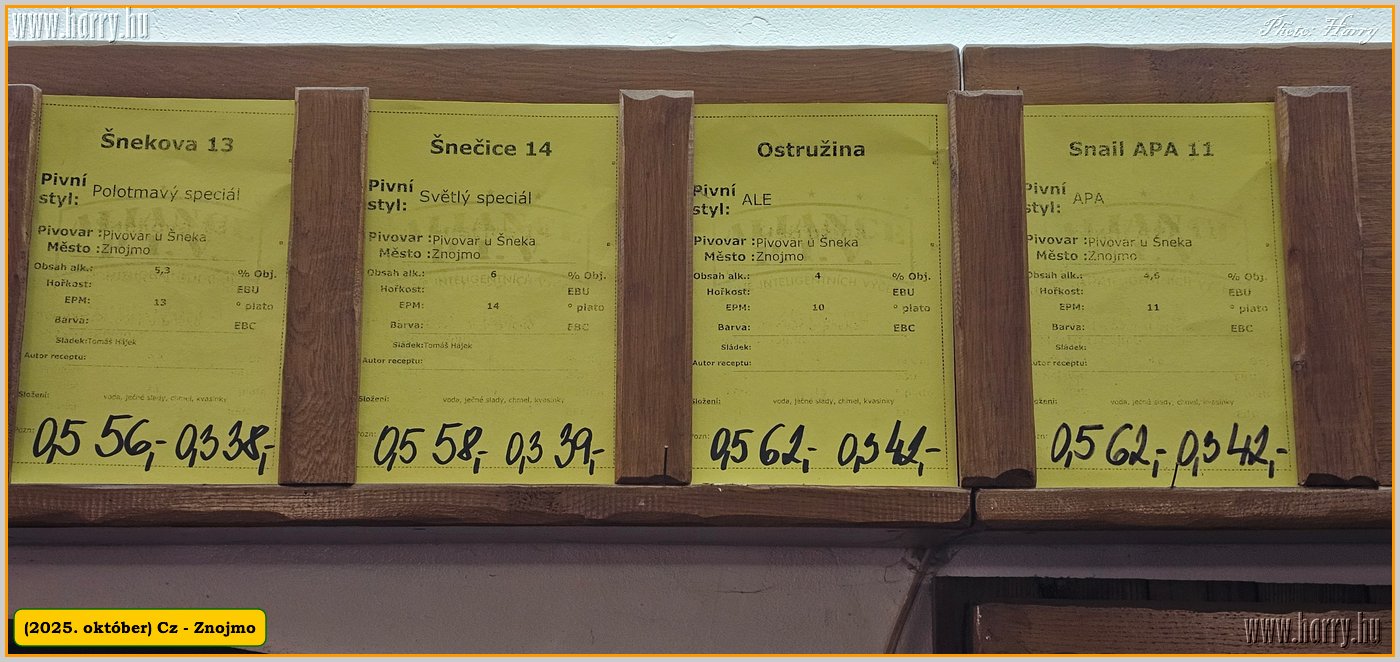 www.harry.hu
Photo: Harry
Šnekova 13
Pivní styl: Polotmavý speciál
Pivovar :Pivovar u Šneka
Město :Znojmo
Obsah alk.: 5,3 % Obj.
Hořkost: EBU
EPM: 13 ° plato
Barva: EBC
Sládek:Tomáš Hájek
Autor receptu:
Složení: voda, ječné slady, chmel, kvasinky
0,5 56,- 0,3 38,-
Šnečice 14
Pivní styl: Světlý speciál
Pivovar :Pivovar u Šneka
Město :Znojmo
Obsah alk.: 6 % Obj.
Hořkost: EBU
EPM: 14 ° plato
Barva: EBC
Sládek:Tomáš Hájek
Autor receptu:
Složení: voda, ječné slady, chmel, kvasinky
0,5 58,- 0,3 39,-
Ostružina
Pivní styl: ALE
Pivovar :Pivovar u Šneka
Město :Znojmo
Obsah alk.: 4 % Obj.
Hořkost: EBU
EPM: 10 ° plato
Barva: EBC
Sládek:
Autor receptu:
Složení: voda, ječné slady, chmel, kvasinky
0,5 62,- 0,3 42,-
Snail APA 11
Pivní styl: APA
Pivovar :Pivovar u Šneka
Město :Znojmo
Obsah alk.: 4,6 % Obj.
Hořkost: EBU
EPM: 11 ° plato
Barva: EBC
Sládek:
Autor receptu:
Složení: voda, ječné slady, chmel, kvasinky
0,5 62,- 0,3 42,-
(2025. október) Cz - Znojmo
www.harry.hu